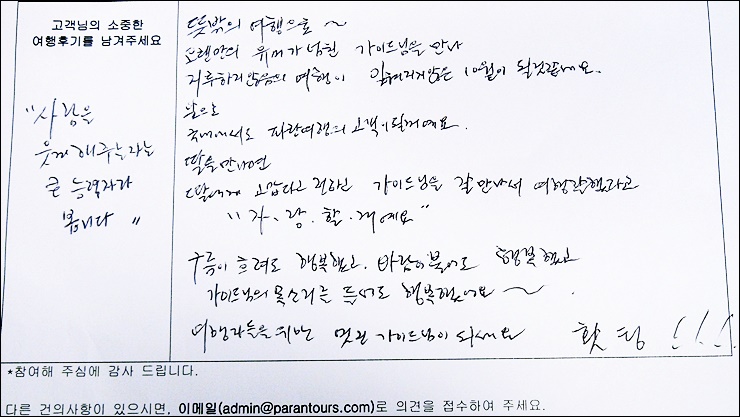 고객님의 소중한
여행후기를 남겨주세요
"사람을
웃게해주는자는
큰 능력자라
봅니다"
뜻밖의 여행으로 ~
오랜만의 유머가 넘친 가이드님을 만나
지루하지않음의 여행이 잊혀지지않은 10월이 될것같네요.
앞으로
국내에서도 파란여행의 고객이될께예요.
딸을 만나면
딸에게 고맙다고 전하신 가이드님을 잘만나서 여행잘했다고
"자.랑.할.께예요"
구름이 흐려도 행복했고. 바람이불어도 행복했고
가이드님의 목소리를 들어도 행복했어요 ~.
여행자들을 위한 멋진 가이드님이 되세요 홧팅!!!
*참여해 주심에 감사 드립니다.
다른 건의사항이 있으시면, 이메일(admin@parantours.com)로 의견을 접수하여 주세요.